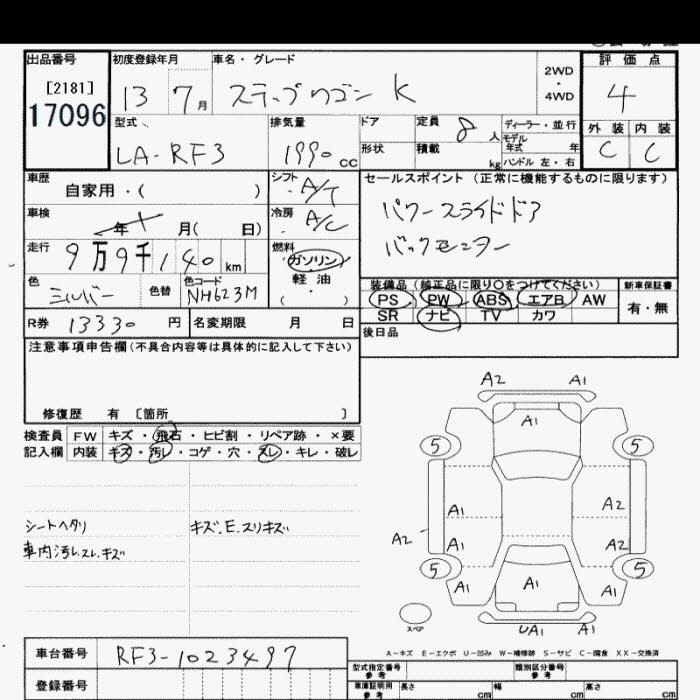 出品番号 初度登録年月 車名・グレード 2WD・4WD 評価点
[2181] 17096 13 7月 ステップワゴン K 4
型式 排気量 ドア 定員 8人 ディーラー・並行 外装 内装
モデル年式 年
LA-RF3 1990cc 形状 積載 kg ハンドル 左・右 C C
車歴 自家用・( ) シフト A/T セールスポイント (正常に機能するものに限ります)
車検 年 月( 日) 冷房 A/C パワースライドドア
走行 9万9千140km 燃料 ガソリン・軽油 ( ) バックモニター
色 シルバー 色替 色コード NH623M 装備品 (純正品に限り○をつけてください) 新車保証書
PS PW ABS エアB AW 有・無
R券 13330円 名変期限 月 日 SR ナビ TV カワ
後日品
注意事項申告欄(不具合内容等は具体的に記入して下さい)
修復歴 有 [箇所 ]
検査員 FW キズ・飛石・ヒビ割・リペア跡・×要
記入欄 内装 キズ・汚レ・コゲ・穴・スレ・キレ・破レ
シートヘタリ キズ.E.スリキズ
車内汚レ.スレ.キズ
A2 A1
A1
5 5
A1 A2
A2 A1 A2
5 5
A1 A1 A1
スペア UA1 A1
A-キズ E-エクボ U-凹み W-補修跡 S-サビ C-腐食 XX-交換済
車台番号 RF3-1023497 型式指定番号 参考 類別区分番号 参考
登録番号 車庫証明用 参考 長さ cm 幅 cm 高さ cm